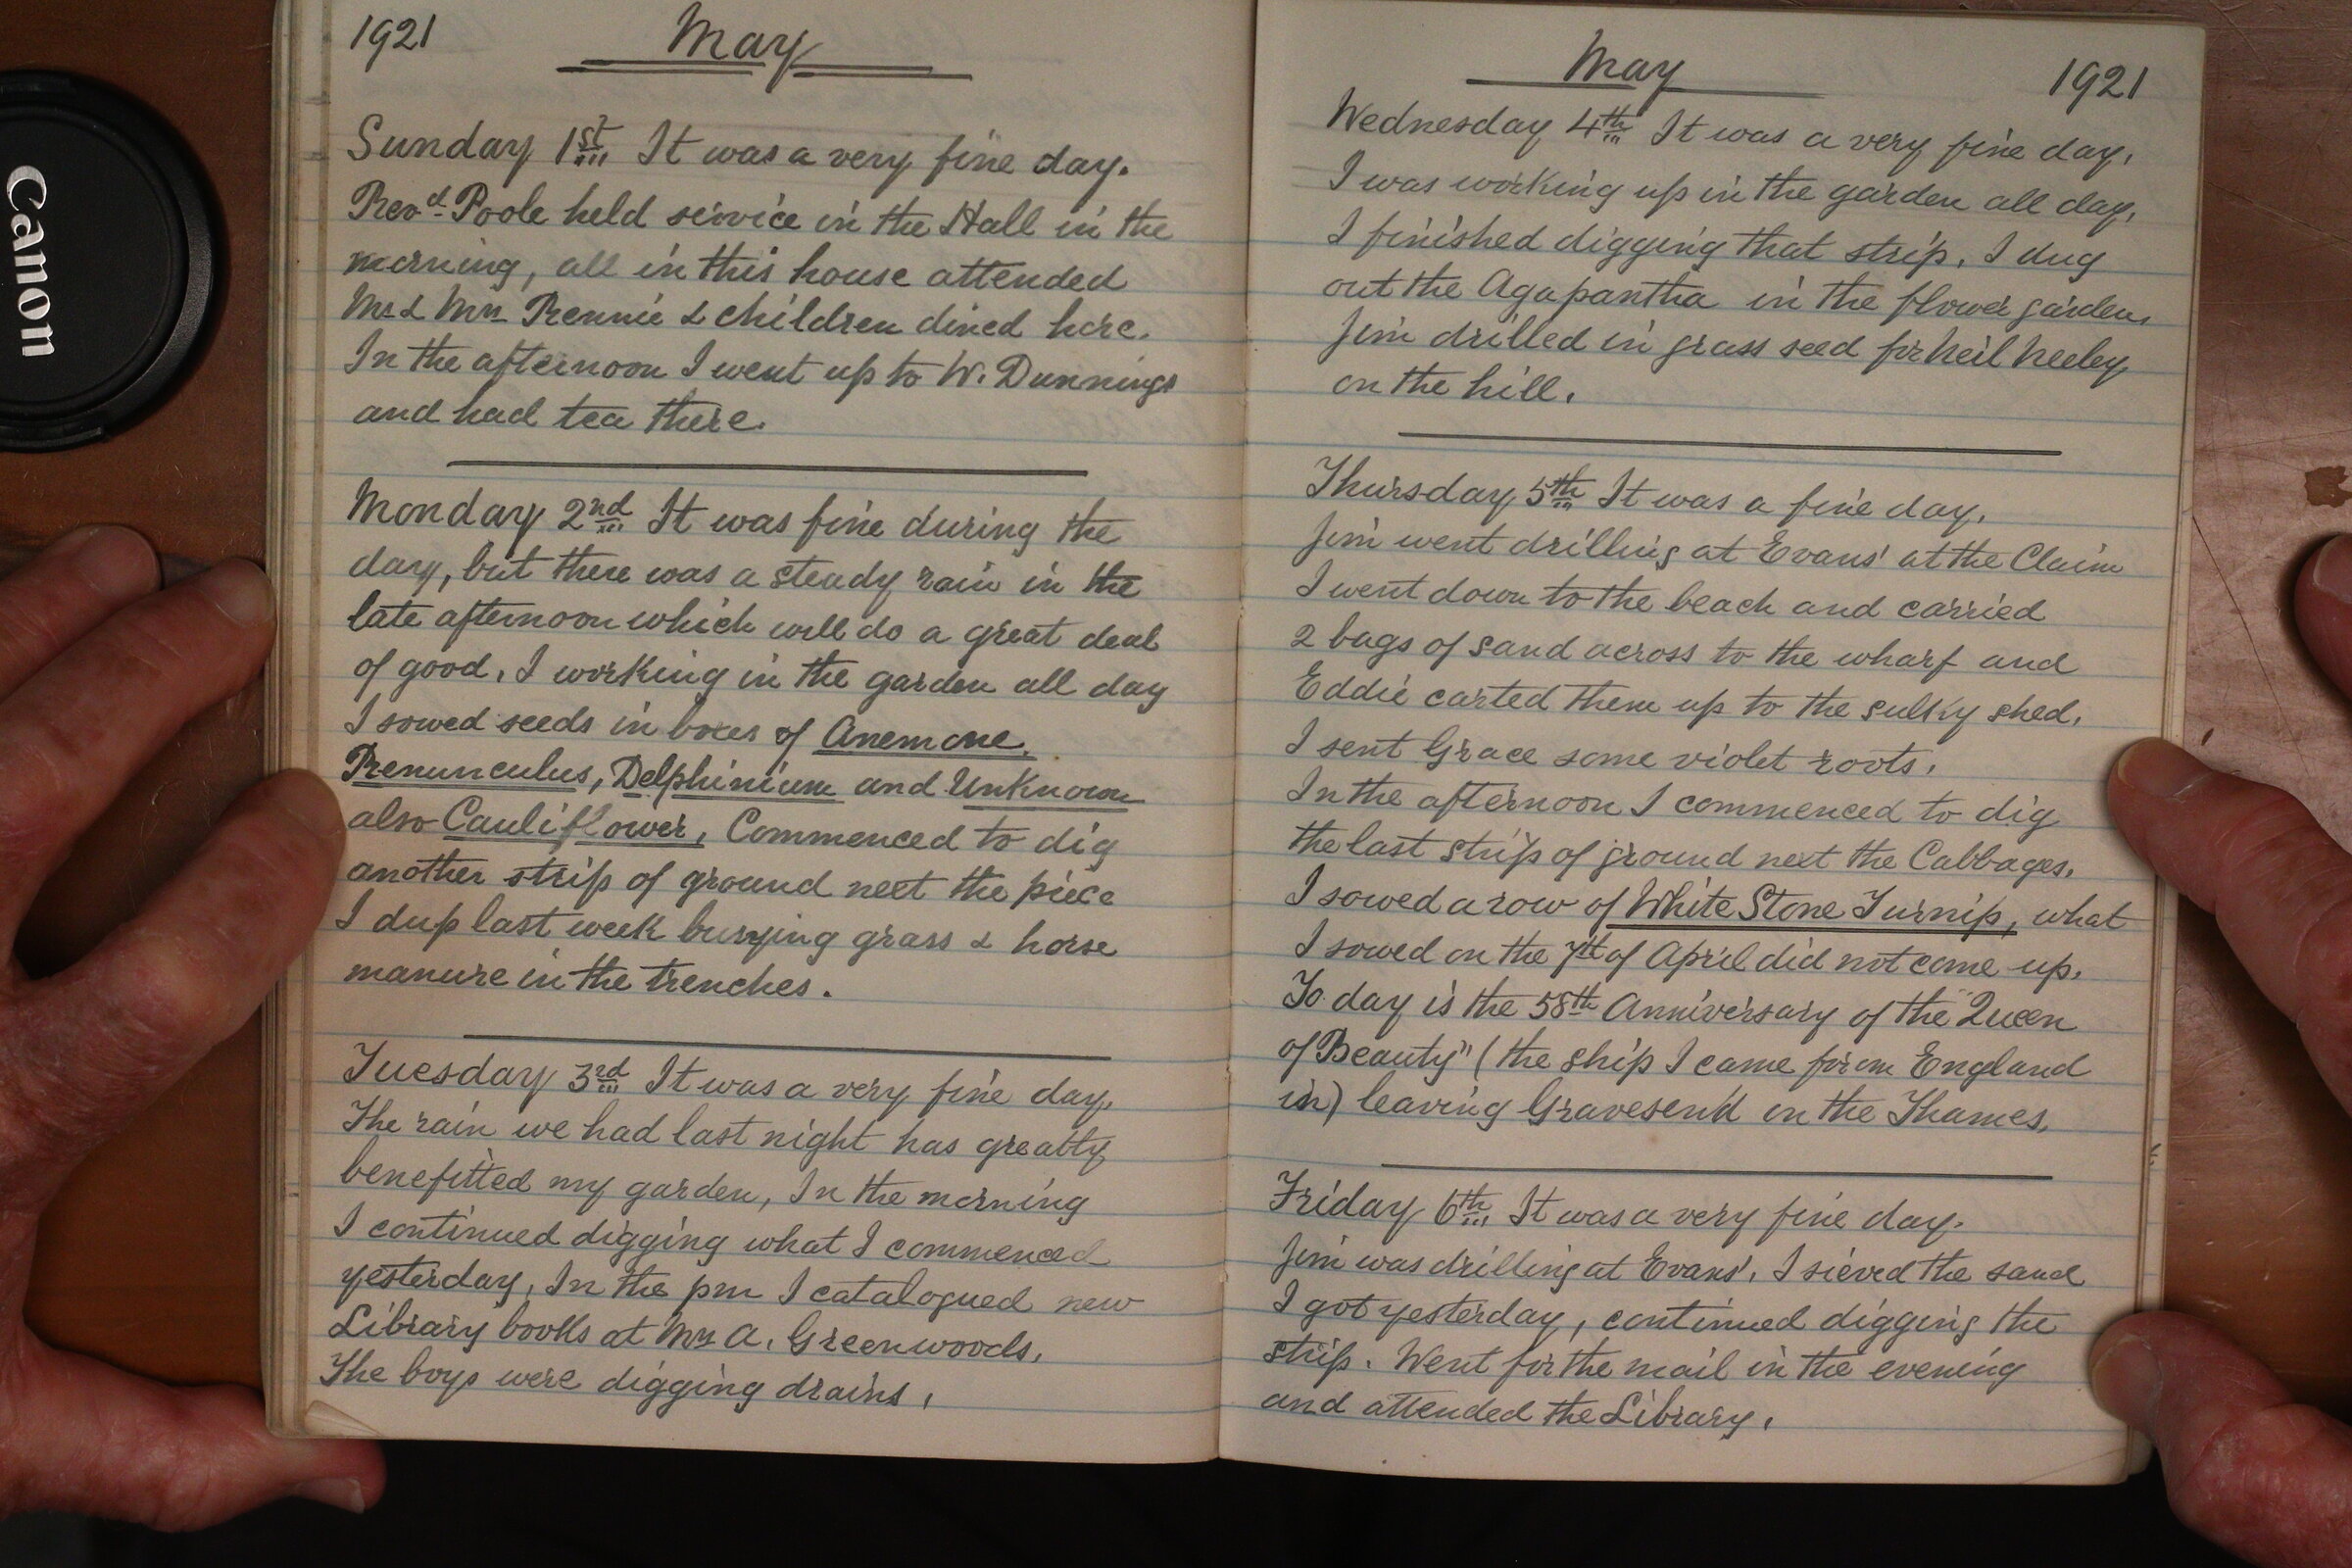 Canon
1921 May
Sunday 1st It was a very fine day.
Revd Poole held service in the Hall in the
morning, all in this house attended
Mr & Mrs Rennie & children dined here.
In the afternoon I went up to W. Dunnings
and had tea there.
Monday 2nd It was fine during the
day, but there was a steady rain in the
late afternoon which will do a great deal
of good, I working in the garden all day
I sowed seeds in boxes of Anemone,
Renunculus, Delphinium and Unknown
also Cauliflower, Commenced to dig
another strip of ground next the piece
I dup last week burying grass & horse
manure in the trenches.
Tuesday 3rd It was a very fine day,
The rain we had last night has greatly
benefitted my garden, In the morning
I continued digging what I commenced
yesterday, In the pm I catalogued new
Library books at Mrs A. Greenwoods,
The boys were digging drains,
May 1921
Wednesday 4th It was a very fine day,
I was working up in the garden all day,
I finished digging that strip, I dug
out the Agapantha in the flower garden,
Jim drilled in grass seed for Neil Neeley
on the hill,
Thursday 5th It was a fine day,
Jim went drilling at Evans' at the Claim
I went down to the beach and carried
2 bags of sand across to the wharf and
Eddie carted them up to the sulky shed,
I sent Grace some violet roots,
In the afternoon I commenced to dig
the last strip of ground next the Cabbages,
I sowed a row of White Stone Turnip, what
I sowed on the 7th of April did not come up,
To day is the 58th Anniversary of the "Queen
of Beauty" (the ship I came from England
in) leaving Gravesend on the Thames,
Friday 6th It was a very fine day.
Jim was drilling at Evans', I sieved the sand
I got yesterday, continued digging the
strip. Went for the mail in the evening
and attended the Library,